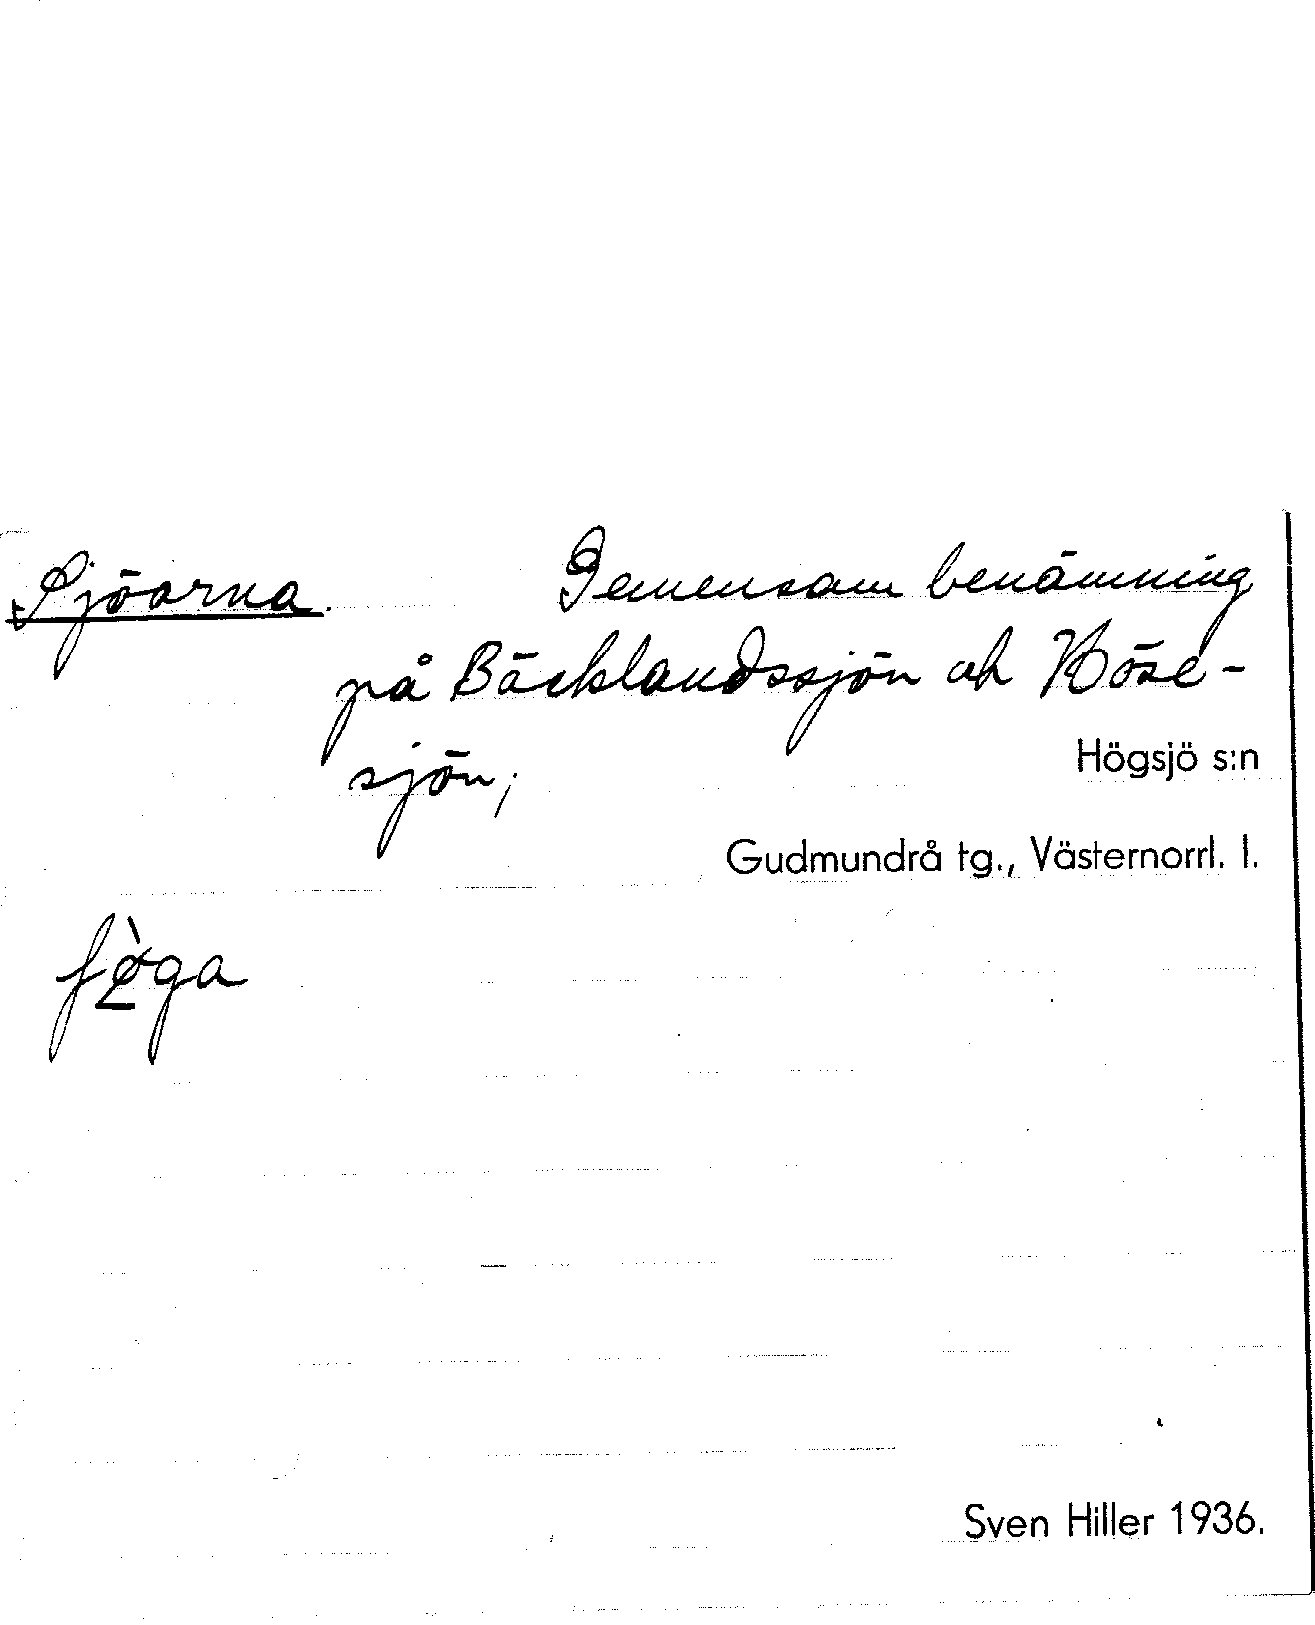 Sjöarna. Gemensam benämning
på Bäcklandssjön och Höse-
sjön;
Högsjö s:n
Gudmundrå tg., Västernorrl. l.
Sven Hiller 1936.